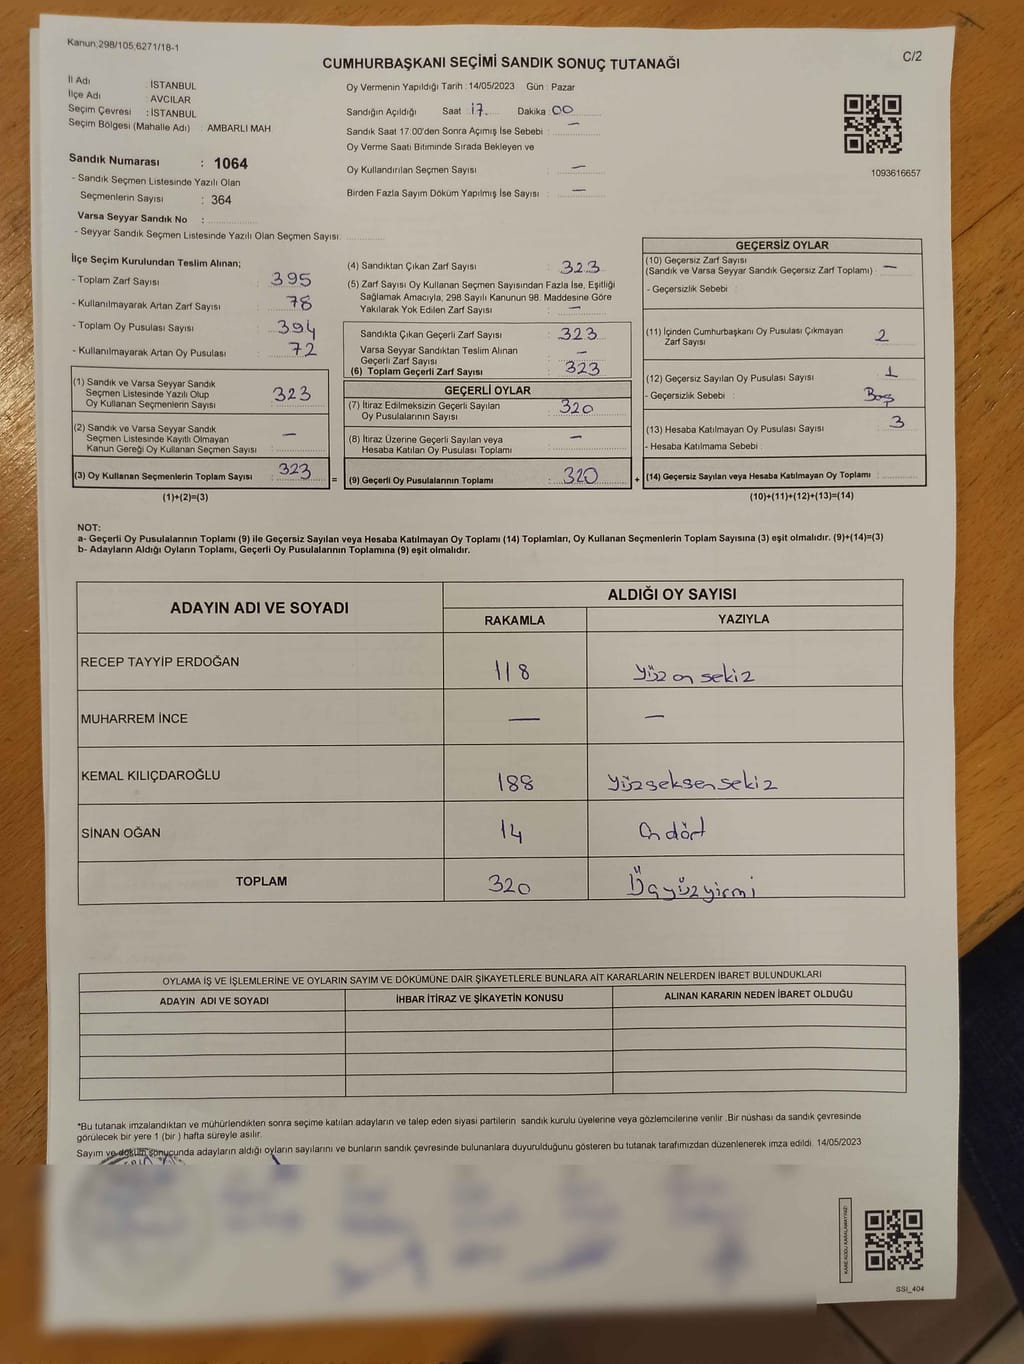 Kanun:298/105,6271/18-1
C/2
CUMHURBAŞKANI SEÇİMİ SANDIK SONUÇ TUTANAĞI
İl Adı : İSTANBUL
İlçe Adı : AVCILAR
Seçim Çevresi : İSTANBUL
Seçim Bölgesi (Mahalle Adı) : AMBARLI MAH
Oy Vermenin Yapıldığı Tarih : 14/05/2023 Gün : Pazar
Sandığın Açıldığı Saat : 17 Dakika : 00
Sandık Saat 17.00'den Sonra Açılmış İse Sebebi : —
Oy Verme Saati Bitiminde Sırada Bekleyen ve
Oy Kullandırılan Seçmen Sayısı : —
Birden Fazla Sayım Döküm Yapılmış İse Sayısı : —
1093616657
Sandık Numarası : 1064
- Sandık Seçmen Listesinde Yazılı Olan
Seçmenlerin Sayısı : 364
Varsa Seyyar Sandık No :
- Seyyar Sandık Seçmen Listesinde Yazılı Olan Seçmen Sayısı:
İlçe Seçim Kurulundan Teslim Alınan;
- Toplam Zarf Sayısı : 395
- Kullanılmayarak Artan Zarf Sayısı : 78
- Toplam Oy Pusulası Sayısı : 394
- Kullanılmayarak Artan Oy Pusulası : 72
(1) Sandık ve Varsa Seyyar Sandık
Seçmen Listesinde Yazılı Olup
Oy Kullanan Seçmenlerin Sayısı : 323
(2) Sandık ve Varsa Seyyar Sandık
Seçmen Listesinde Kayıtlı Olmayan
Kanun Gereği Oy Kullanan Seçmen Sayısı : —
(3) Oy Kullanan Seçmenlerin Toplam Sayısı : 323
(1)+(2)=(3)
(4) Sandıktan Çıkan Zarf Sayısı : 323
(5) Zarf Sayısı Oy Kullanan Seçmen Sayısından Fazla İse, Eşitliği
Sağlamak Amacıyla; 298 Sayılı Kanunun 98. Maddesine Göre
Yakılarak Yok Edilen Zarf Sayısı : —
Sandıkta Çıkan Geçerli Zarf Sayısı : 323
Varsa Seyyar Sandıktan Teslim Alınan
Geçerli Zarf Sayısı : —
(6) Toplam Geçerli Zarf Sayısı : 323
GEÇERLİ OYLAR
(7) İtiraz Edilmeksizin Geçerli Sayılan
Oy Pusulalarının Sayısı : 320
(8) İtiraz Üzerine Geçerli Sayılan veya
Hesaba Katılan Oy Pusulası Toplamı : —
= (9) Geçerli Oy Pusulalarının Toplamı : 320
GEÇERSİZ OYLAR
(10) Geçersiz Zarf Sayısı
(Sandık ve Varsa Seyyar Sandık Geçersiz Zarf Toplamı) : —
- Geçersizlik Sebebi :
(11) İçinden Cumhurbaşkanı Oy Pusulası Çıkmayan
Zarf Sayısı : 2
(12) Geçersiz Sayılan Oy Pusulası Sayısı : 1
- Geçersizlik Sebebi : Boş
(13) Hesaba Katılmayan Oy Pusulası Sayısı : 3
- Hesaba Katılmama Sebebi :
+ (14) Geçersiz Sayılan veya Hesaba Katılmayan Oy Toplamı :
(10)+(11)+(12)+(13)=(14)
NOT:
a- Geçerli Oy Pusulalarının Toplamı (9) ile Geçersiz Sayılan veya Hesaba Katılmayan Oy Toplamı (14) Toplamları, Oy Kullanan Seçmenlerin Toplam Sayısına (3) eşit olmalıdır. (9)+(14)=(3)
b- Adayların Aldığı Oyların Toplamı, Geçerli Oy Pusulalarının Toplamına (9) eşit olmalıdır.
ADAYIN ADI VE SOYADI
ALDIĞI OY SAYISI
RAKAMLA YAZIYLA
RECEP TAYYİP ERDOĞAN 118 Yüz on sekiz
MUHARREM İNCE — —
KEMAL KILIÇDAROĞLU 188 Yüzseksensekiz
SİNAN OĞAN 14 On dört
TOPLAM 320 Üçyüzyirmi
OYLAMA İŞ VE İŞLEMLERİNE VE OYLARIN SAYIM VE DÖKÜMÜNE DAİR ŞİKAYETLERLE BUNLARA AİT KARARLARIN NELERDEN İBARET BULUNDUKLARI
ADAYIN ADI VE SOYADI İHBAR İTİRAZ VE ŞİKAYETİN KONUSU ALINAN KARARIN NEDEN İBARET OLDUĞU
*Bu tutanak imzalandıktan ve mühürlendikten sonra seçime katılan adayların ve talep eden siyasi partilerin sandık kurulu üyelerine veya gözlemcilerine verilir .Bir nüshası da sandık çevresinde
görülecek bir yere 1 (bir ) hafta süreyle asılır.
Sayım ve döküm sonucunda adayların aldığı oyların sayılarını ve bunların sandık çevresinde bulunanlara duyurulduğunu gösteren bu tutanak tarafımızdan düzenlenerek imza edildi. 14/05/2023
KAREKODU KARALAMAYINIZ!
SSI_404